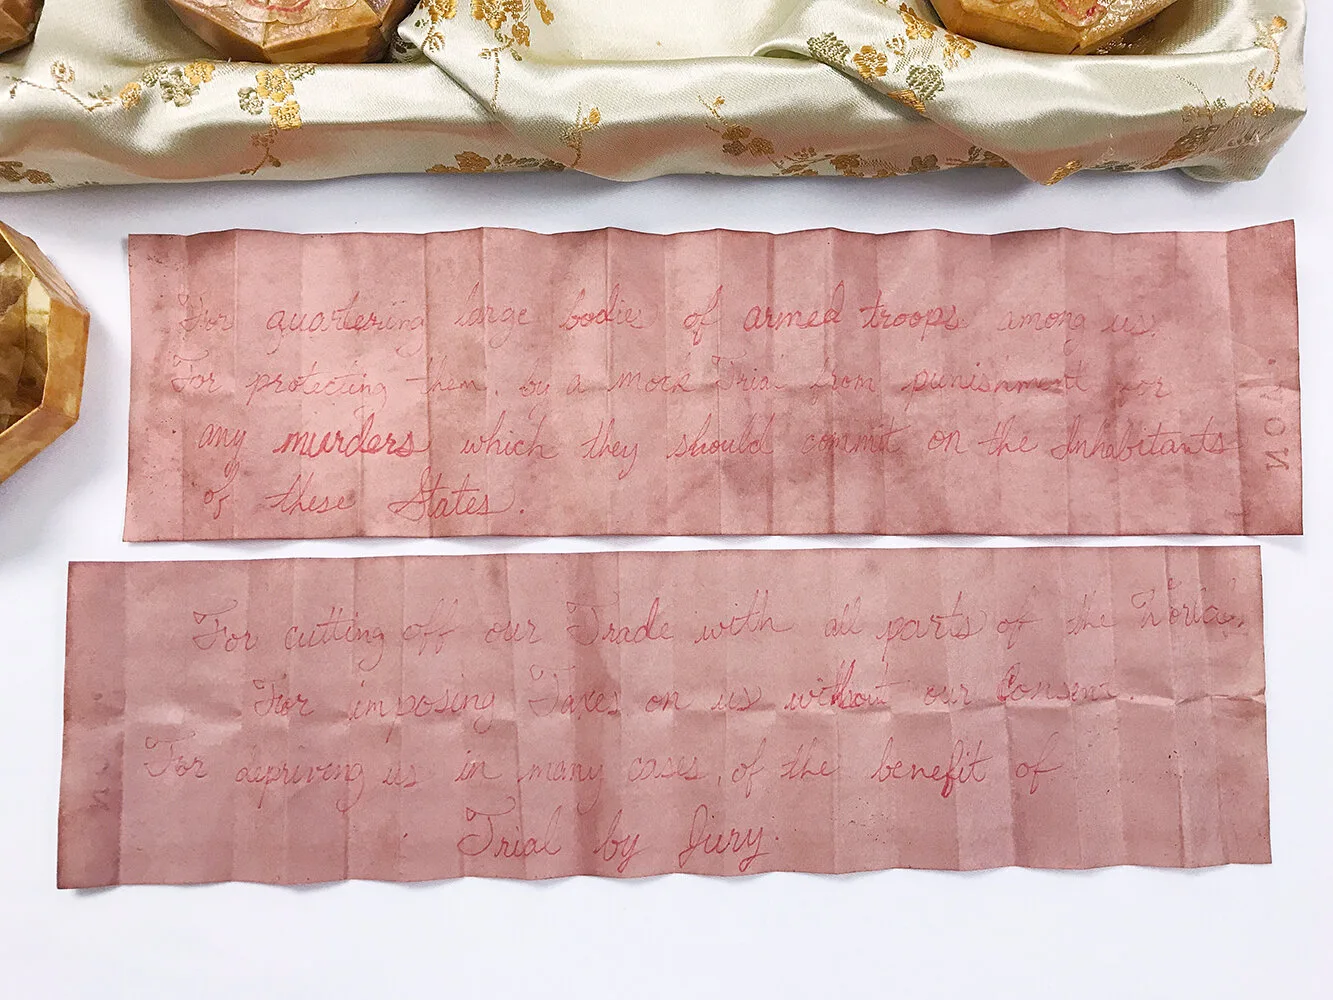 For quartering large bodies of armed troops among us.
For protecting them, by a mock Trial from punishment for
any murders which they should commit on the Inhabitants
of these States.
For cutting off our Trade with all parts of the World
For imposing Taxes on us without our Consent.
For depriving us in many cases, of the benefit of
Trial by Jury.